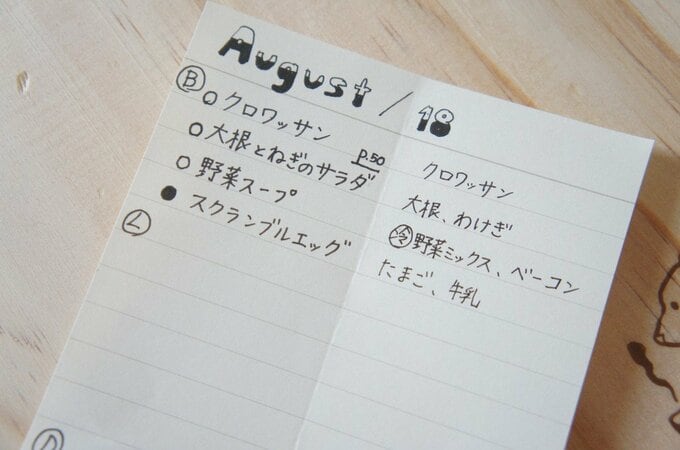 August / 18
Ⓑ ○ クロワッサン
○ 大根とねぎのサラダ P.50
○ 野菜スープ
● スクランブルエッグ
Ⓛ
Ⓓ
クロワッサン
大根、わけぎ
㋹野菜ミックス、ベーコン
たまご、牛乳